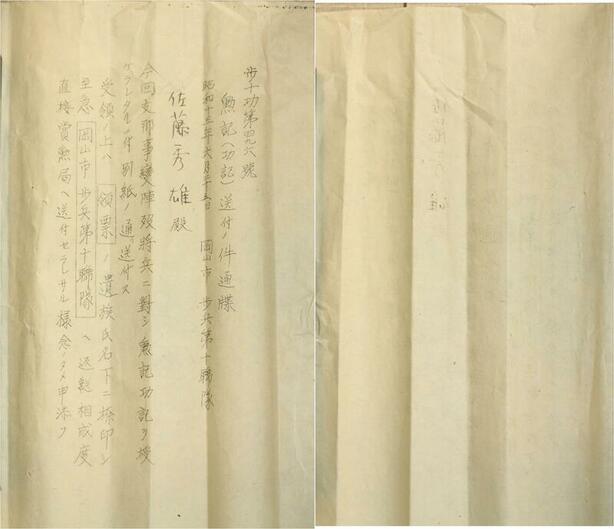 步十功第四九六號
勲記(功記)送付ノ件通牒
昭和十三年六月二十五日 岡山市 步兵第十聯隊
佐藤秀雄殿
今回支那事變陣歿將兵ニ對シ勲記功記ヲ授
ケラレタルニ付別紙ノ通送付ス
受領ノ上ハ 領票 ノ遺族氏名下ニ捺印シ
至急 岡山市步兵第十聯隊 ヘ返送相成度
直接賞勲局ヘ送付セラレサル樣念ノタメ申添フ